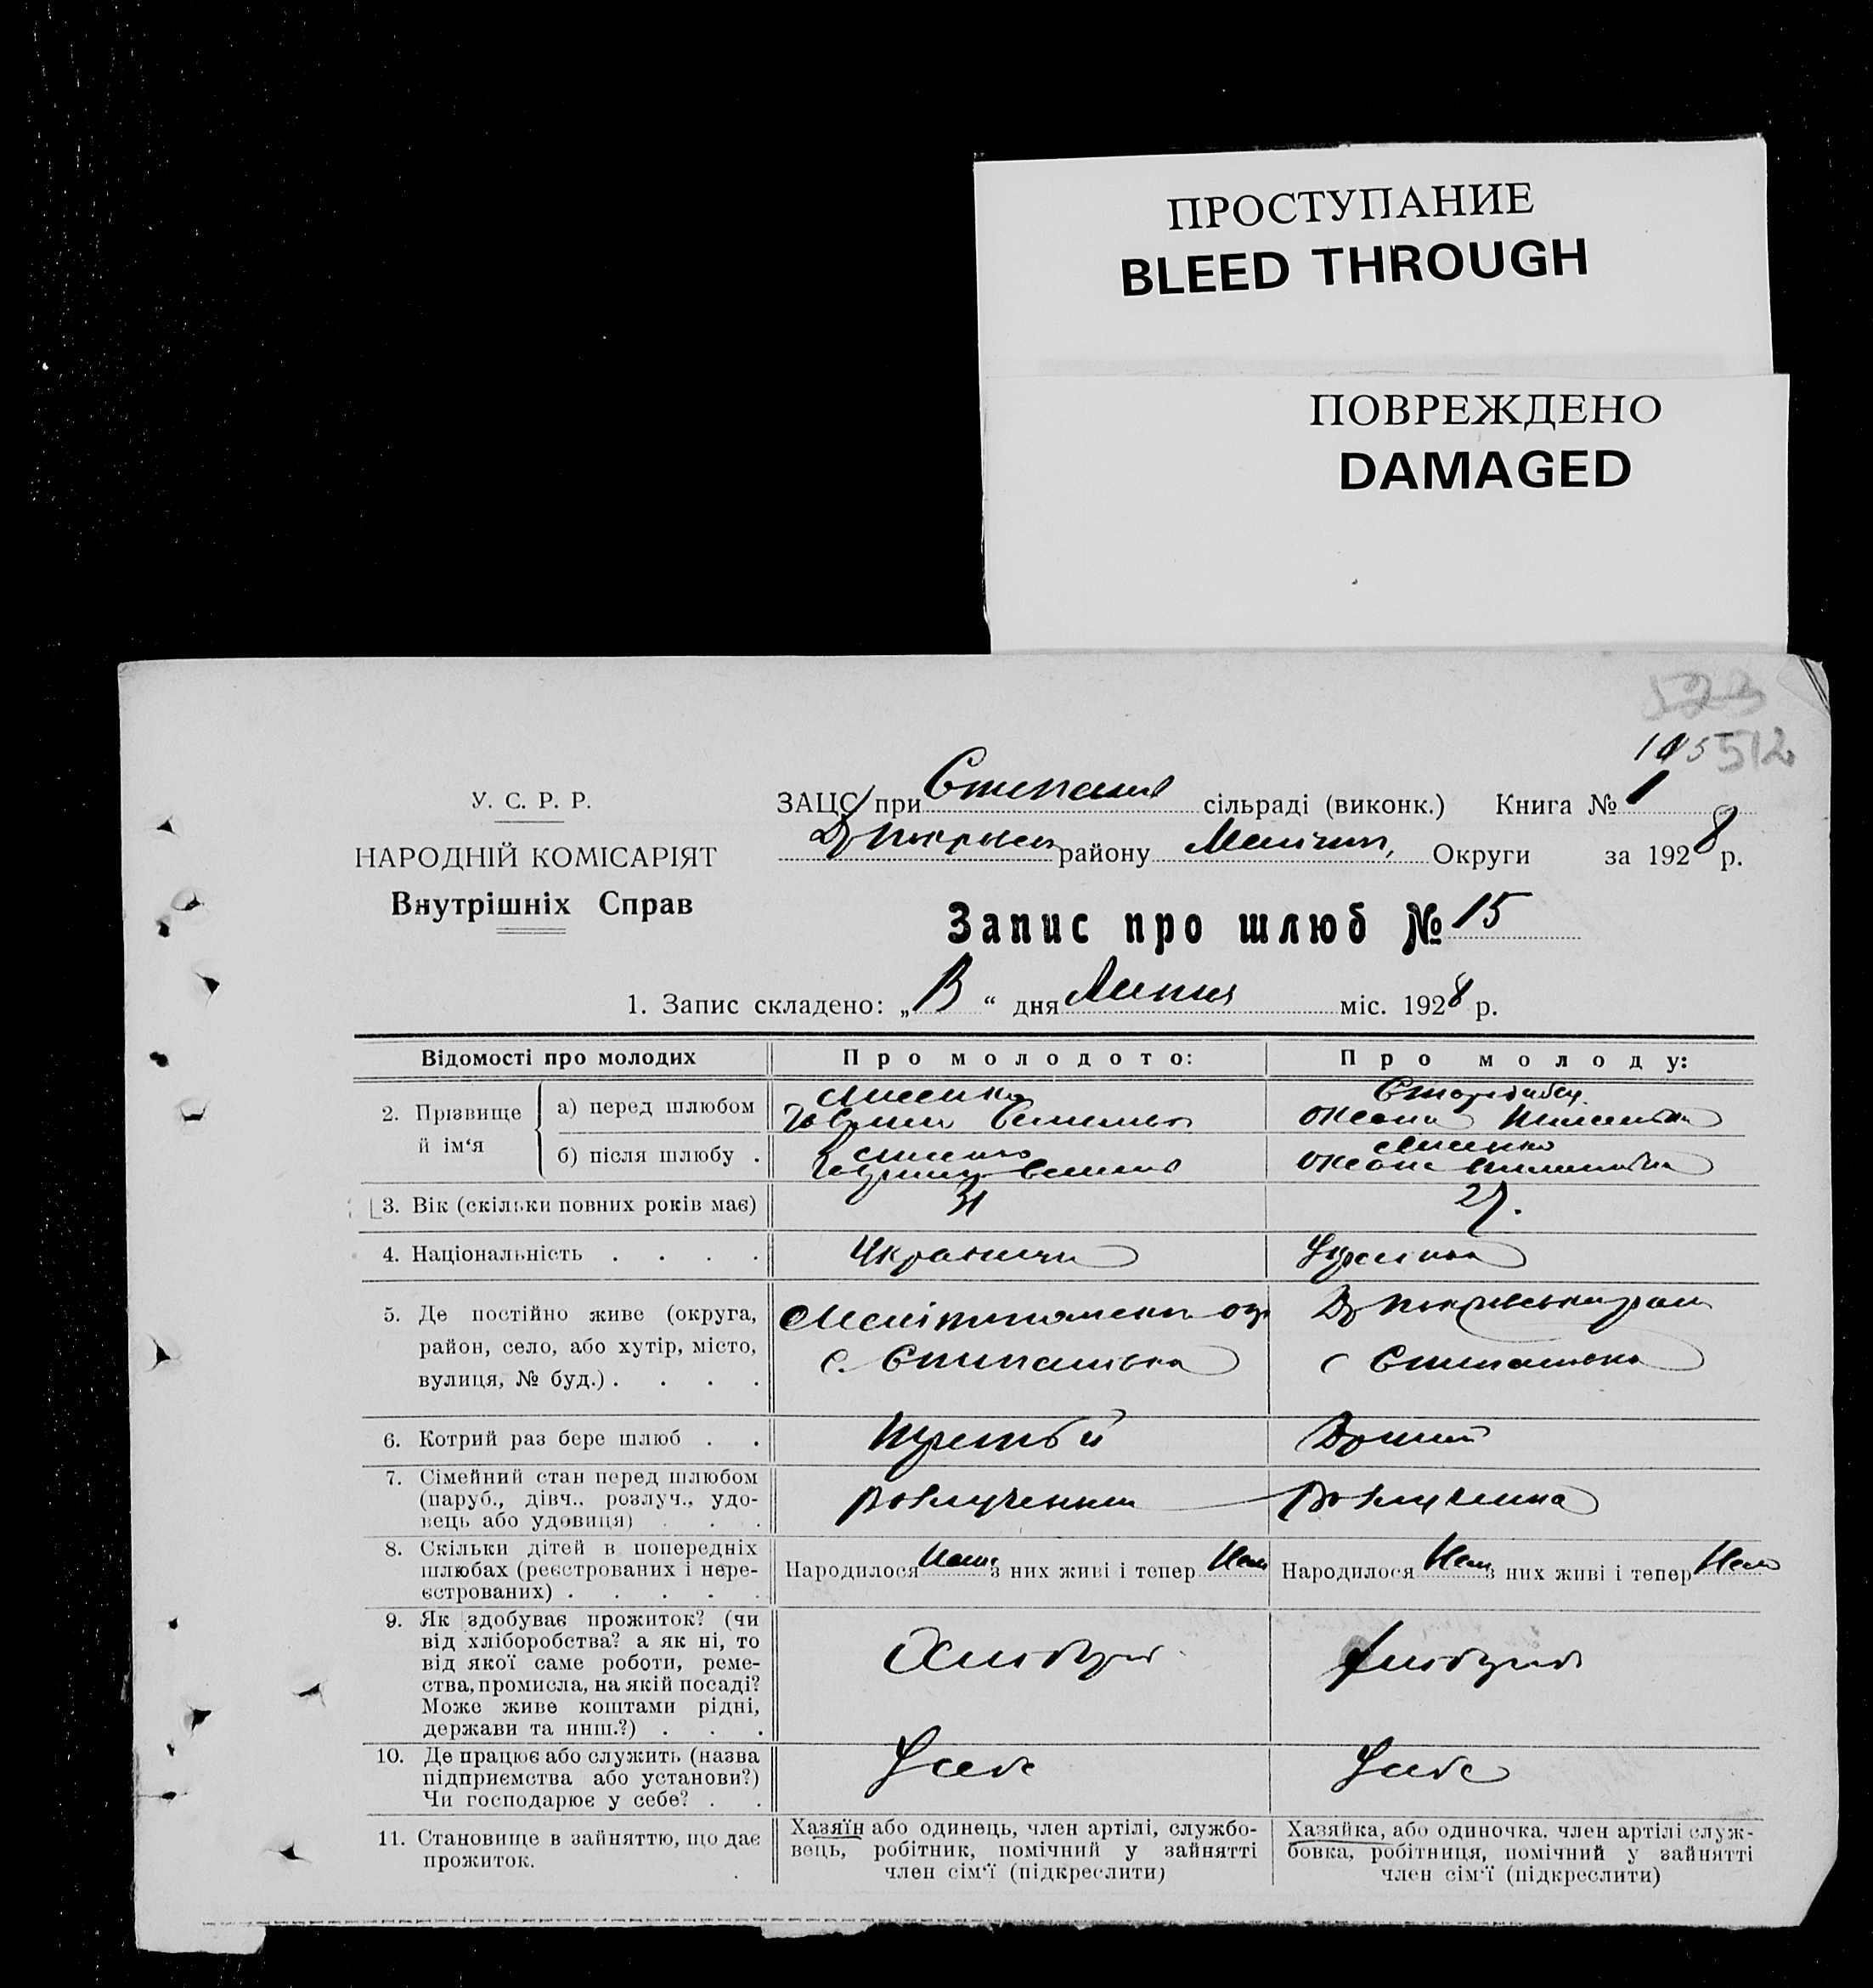 ПРОСТУПАНИЕ
BLEED THROUGH
ПОВРЕЖДЕНО
DAMAGED
523
512
У. С. Р. Р.
НАРОДНІЙ КОМІСАРІЯТ
Внутрішніх Справ
ЗАЦС при сільраді (виконк.) Книга № 1
району Округи за 1928 р.
Запис про шлюб № 15
1. Запис складено: „ “ дня Липня міс. 1928 р.
Відомості про молодих
Про молодого:
Про молоду:
2. Прізвище й ім‘я
а) перед шлюбом
Лисенко
Оксана
б) після шлюбу .
Лисенко
Лисенко
Оксана
3. Вік (скільки повних років має)
31
27.
4. Національність . . . .
Українець
Українка
5. Де постійно живе (округа,
район, село, або хутір, місто,
вулиця, № буд.) . . . .
с. Степанівка
с Степанівка
6. Котрий раз бере шлюб . .
Третій
Другий
7. Сімейний стан перед шлюбом
(паруб., дівч., розлуч., удо-
вець або удовиця) . . .
Розлучений
Розлучена
8. Скільки дітей в попередніх
шлюбах (реєстрованих і нере-
єстрованих) . . . . .
Народилося Нема з них живі і тепер Нема
Народилося Нема з них живі і тепер Нема
9. Як здобуває прожиток? (чи
від хліборобства? а як ні, то
від якої саме роботи, реме-
ства, промисла, на якій посаді?
Може живе коштами рідні,
держави та инш.?) . . .
Хлібороб
Хлібороб
10. Де працює або служить (назва
підприємства або установи?)
Чи господарює у себе? . .
У себе
У себе
11. Становище в зайняттю, що дає
прожиток.
Хазяїн або одинець, член артілі, службо-
вець, робітник, помічний у зайнятті
член сім‘ї (підкреслити)
Хазяйка, або одиночка. член артілі служ-
бовка, робітниця, помічний у зайнятті
член сім‘ї (підкреслити)